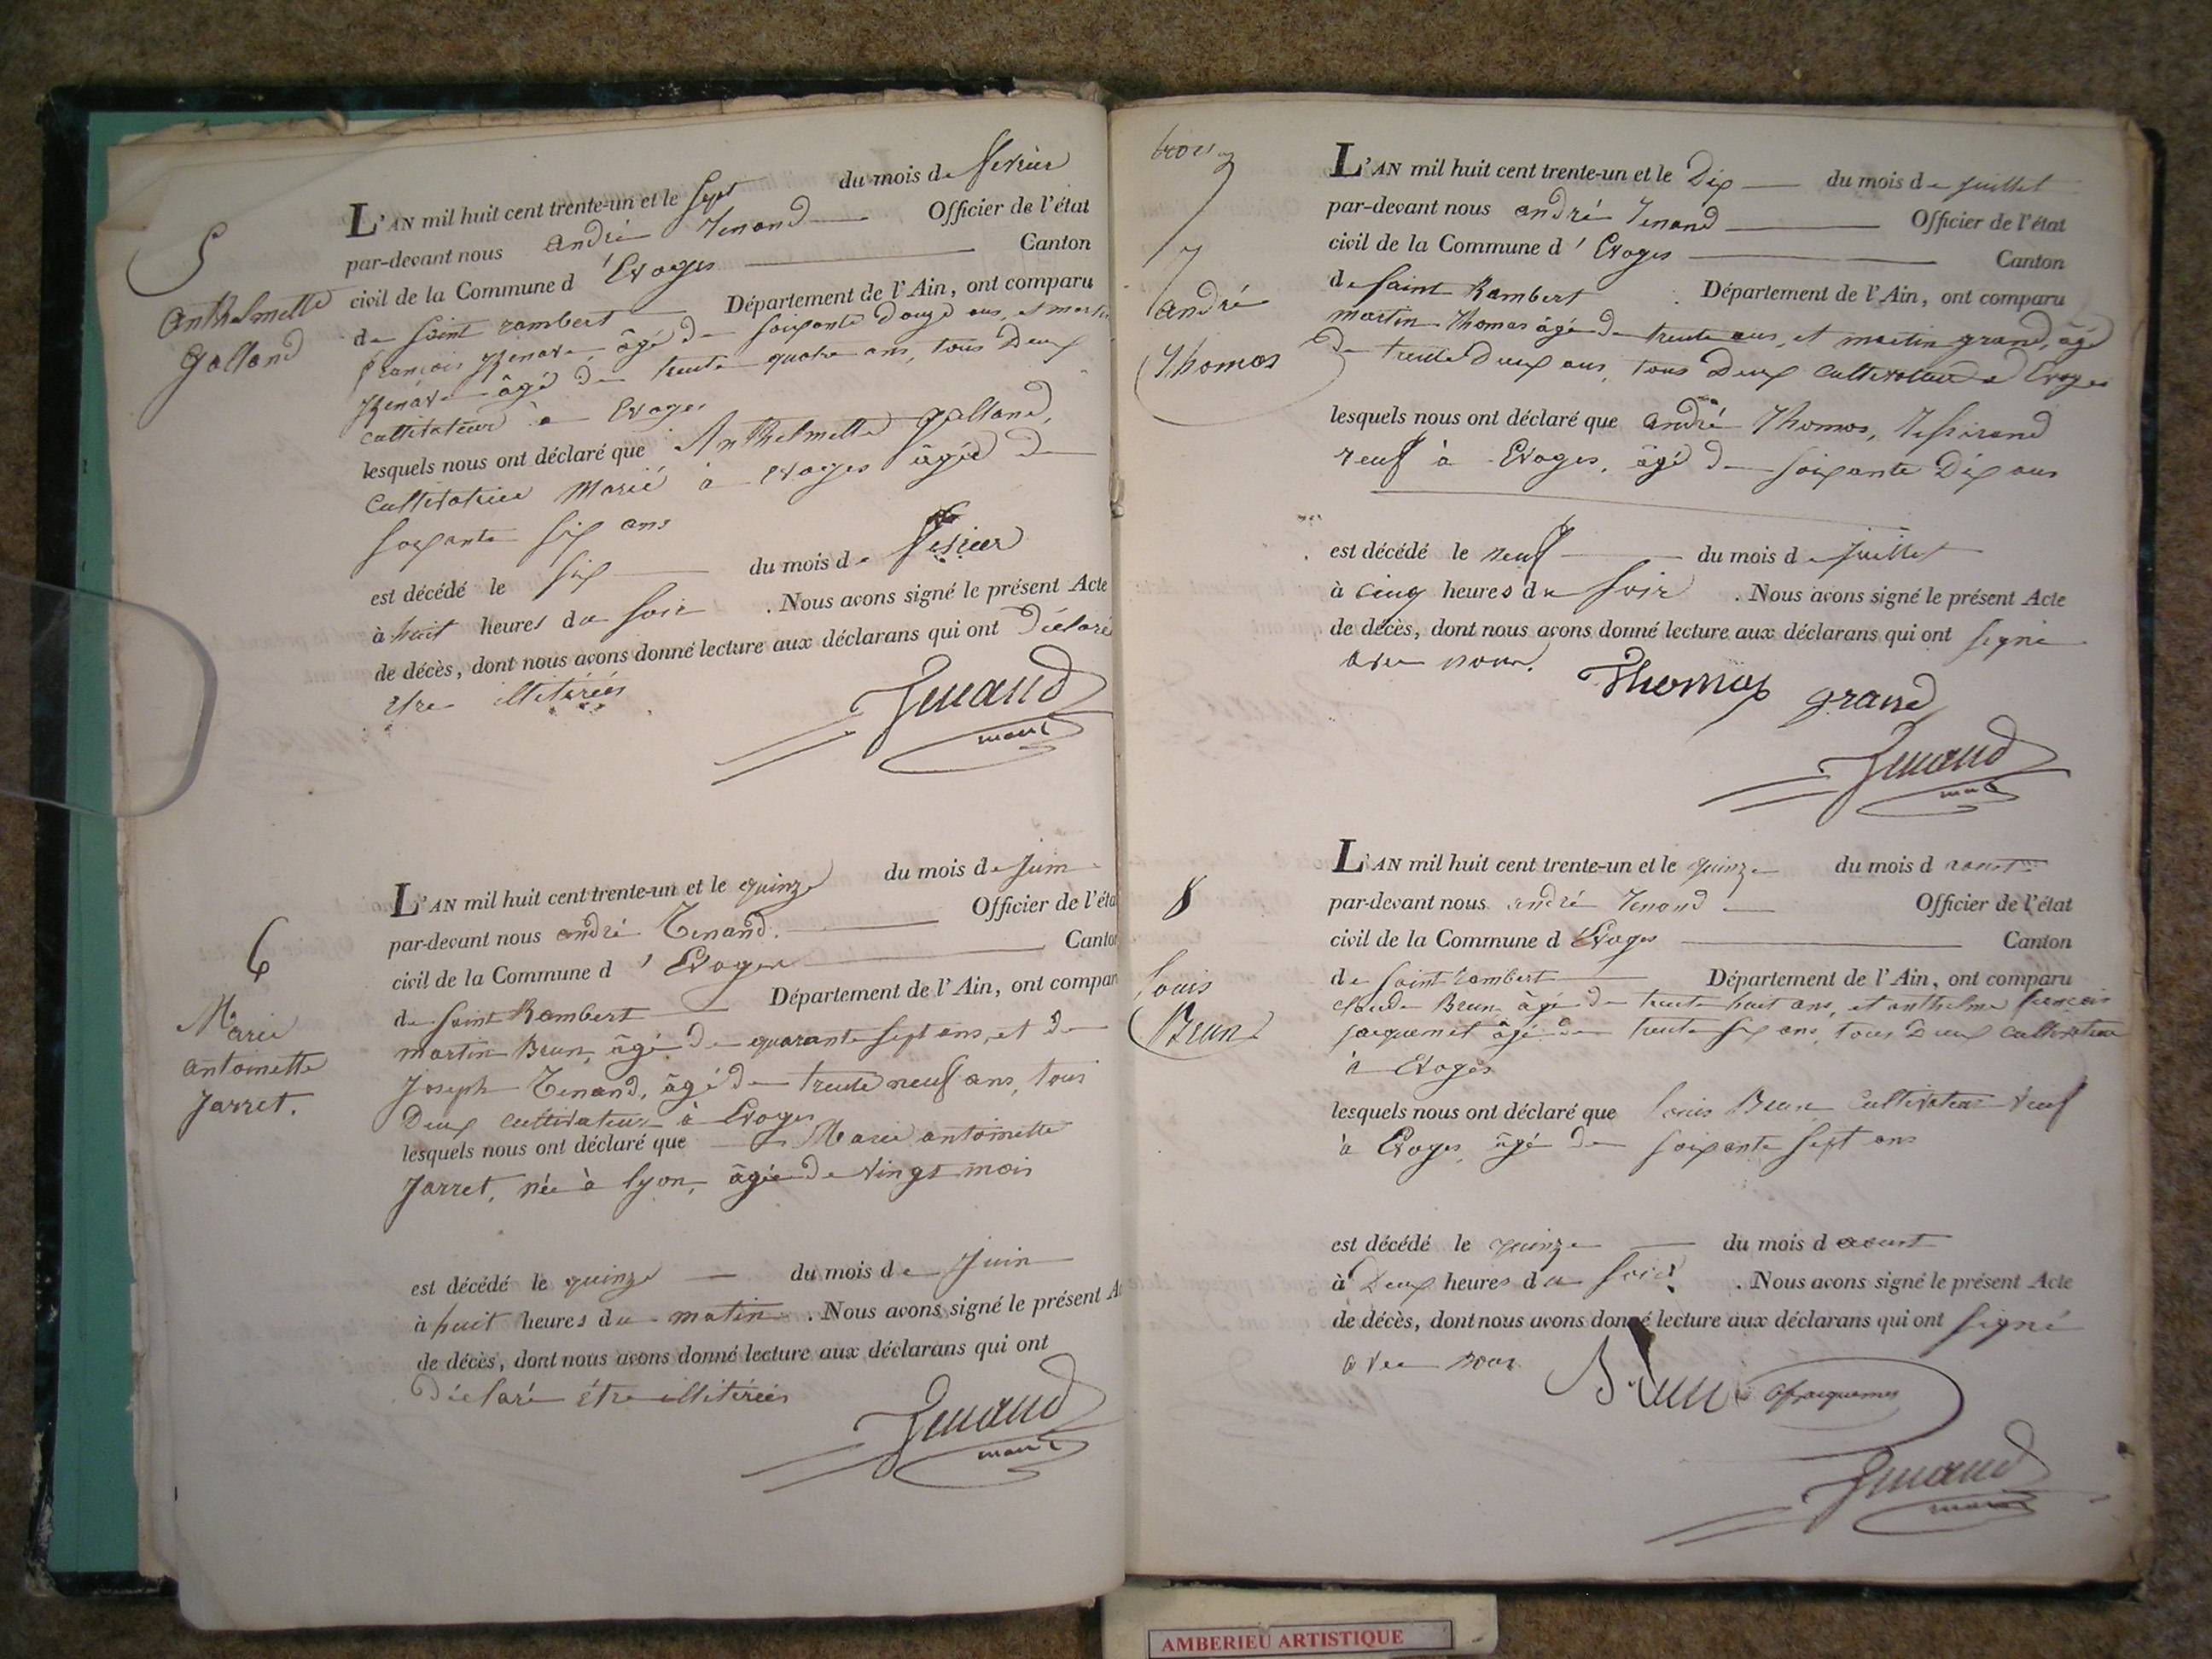 5
Anthelmette
Galland
L'AN mil huit cent trente-un et le sept du mois de fevrier
par-devant nous andré Tenand Officier de l'état
civil de la Commune d'Evoges Canton
de saint rambert Département de l'Ain, ont comparu
françois âgé de soixante douze ans, et martin
âgé de trente quatre ans, tous deux
cultivateur à Evoges
lesquels nous ont déclaré que Anthelmette galland,
cultivatrice Marié à evoges âgée de
soixante six ans
est décédé le six du mois de fevrier
à huit heures du soir . Nous avons signé le présent Acte
de décès, dont nous avons donné lecture aux déclarans qui ont déclaré
etre illitérées
Tenand
maire
6
Marie
antoinette
Jarret.
L'AN mil huit cent trente-un et le quinze du mois de juin
par-devant nous andré Tenand. Officier de l'éta
civil de la Commune d'Evoges Canton
de saint Rambert Département de l'Ain, ont compar
martin Brun, âgé de quarante sept ans, et de
Joseph Tenand, âgé de trente neuf ans, tous
deux cultivateur à Evoges
lesquels nous ont déclaré que Marie antoinette
Jarret, née à lyon, âgée de vingt mois
est décédé le quinze du mois de juin
à huit heures du matin . Nous avons signé le présent A
de décès, dont nous avons donné lecture aux déclarans qui ont
déclaré étre illitérées
Tenand
maire
trois
7
andré
Thomas
L'AN mil huit cent trente-un et le Dix du mois de juillet
par-devant nous andré Tenand Officier de l'état
civil de la Commune d'Evoges Canton
de saint Rambert Département de l'Ain, ont comparu
martin Thomas âgé de trente ans, et martin grand, âgé
de trente deux ans, tous deux cultivateur a Evoges
lesquels nous ont déclaré que andré Thomas, Tisserand
veuf à Evoges, âgé de soixante Dix ans
est décédé le neuf du mois de juillet
à cinq heures du soir . Nous avons signé le présent Acte
de décès, dont nous avons donné lecture aux déclarans qui ont signé
avec nous.
Thomas grand
Tenand
maire
8
louis
Brun
L'AN mil huit cent trente-un et le quinze du mois d aoust
par-devant nous andré Tenand Officier de l'état
civil de la Commune d Evoges Canton
de saint rambert Département de l'Ain, ont comparu
claude Brun âgé de trente huit ans, et anthelme françois
jacquemet âgé de trente six ans, tous deux cultivateur
à Evoges
lesquels nous ont déclaré que louis Brun cultivateur veuf
à Evoges, âgé de soixante sept ans
est décédé le quinze du mois d aoust
à Deux heures du soir . Nous avons signé le présent Acte
de décès, dont nous avons donné lecture aux déclarans qui ont signé
avec nous
Brun
Tenand
maire
AMBERIEU ARTISTIQUE